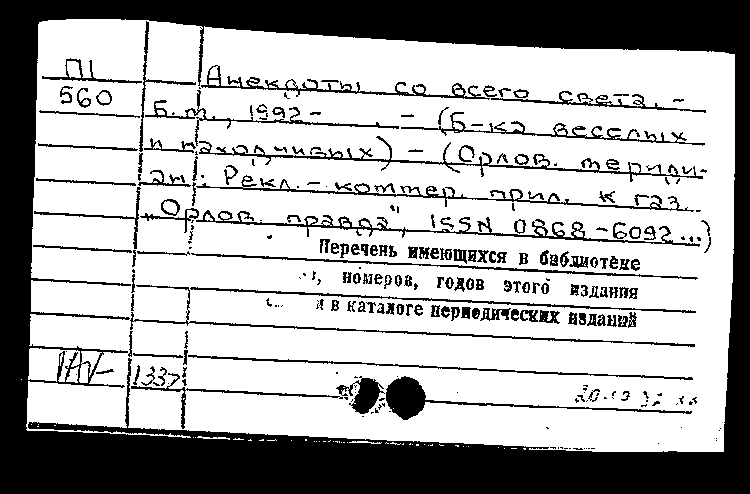 П1
560
Анекдоты со всего света. -
Б.м., 1992- . - (Б-ка веселых
и находчивых) - (Орлов. мериди-
ан: Рекл.-коммер. прил. к газ.
„Орлов. правда", ISSN 0868-6092...)
Перечень имеющихся в библиотеке
номеров, годов этого издания
в каталоге периодических изданий
1337